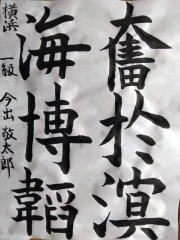 奮於溟
海博韜
横浜 一級 今出敬太郎